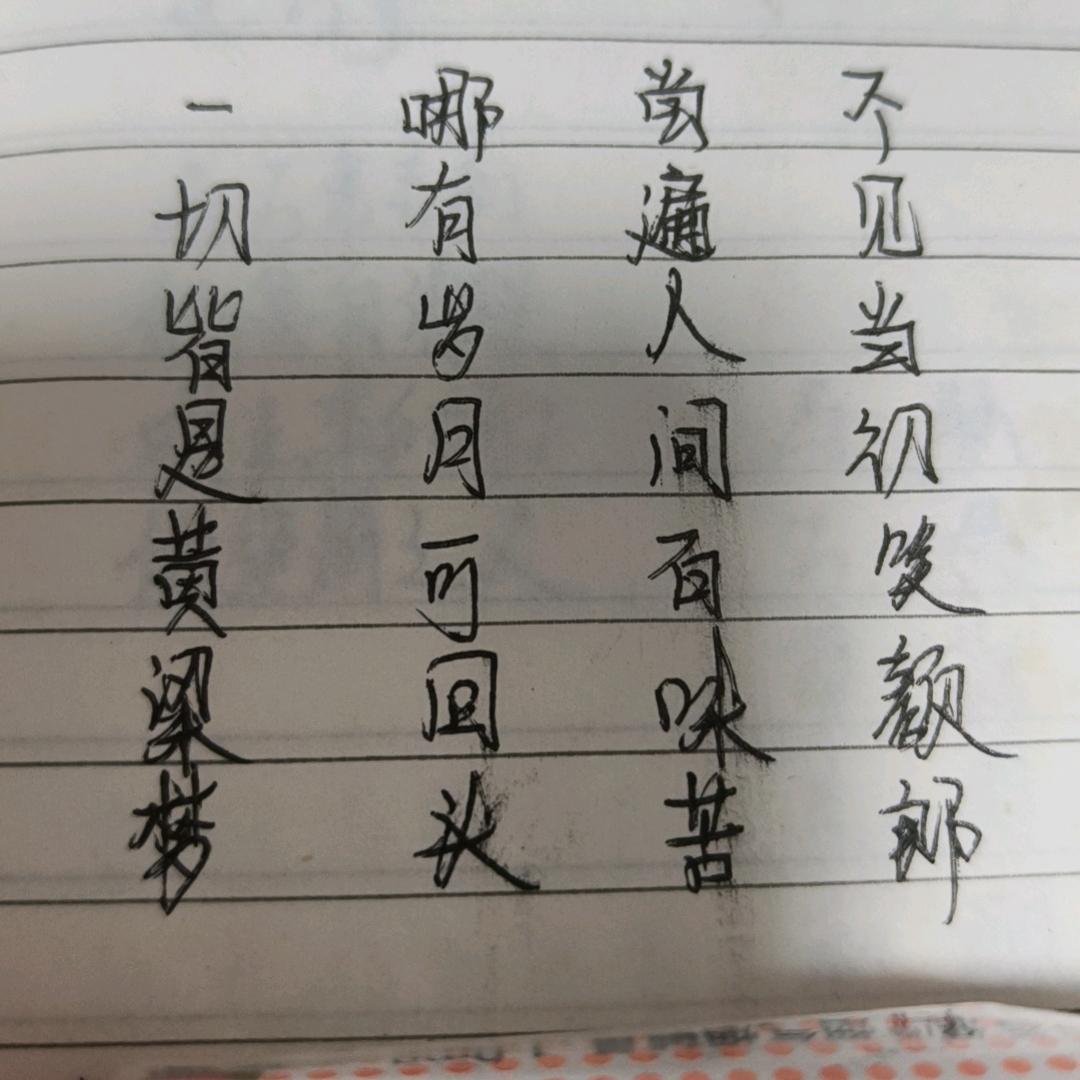 不见当初笑颜郎
尝遍人间百味苦
哪有岁月可回头
一切皆是黄粱梦